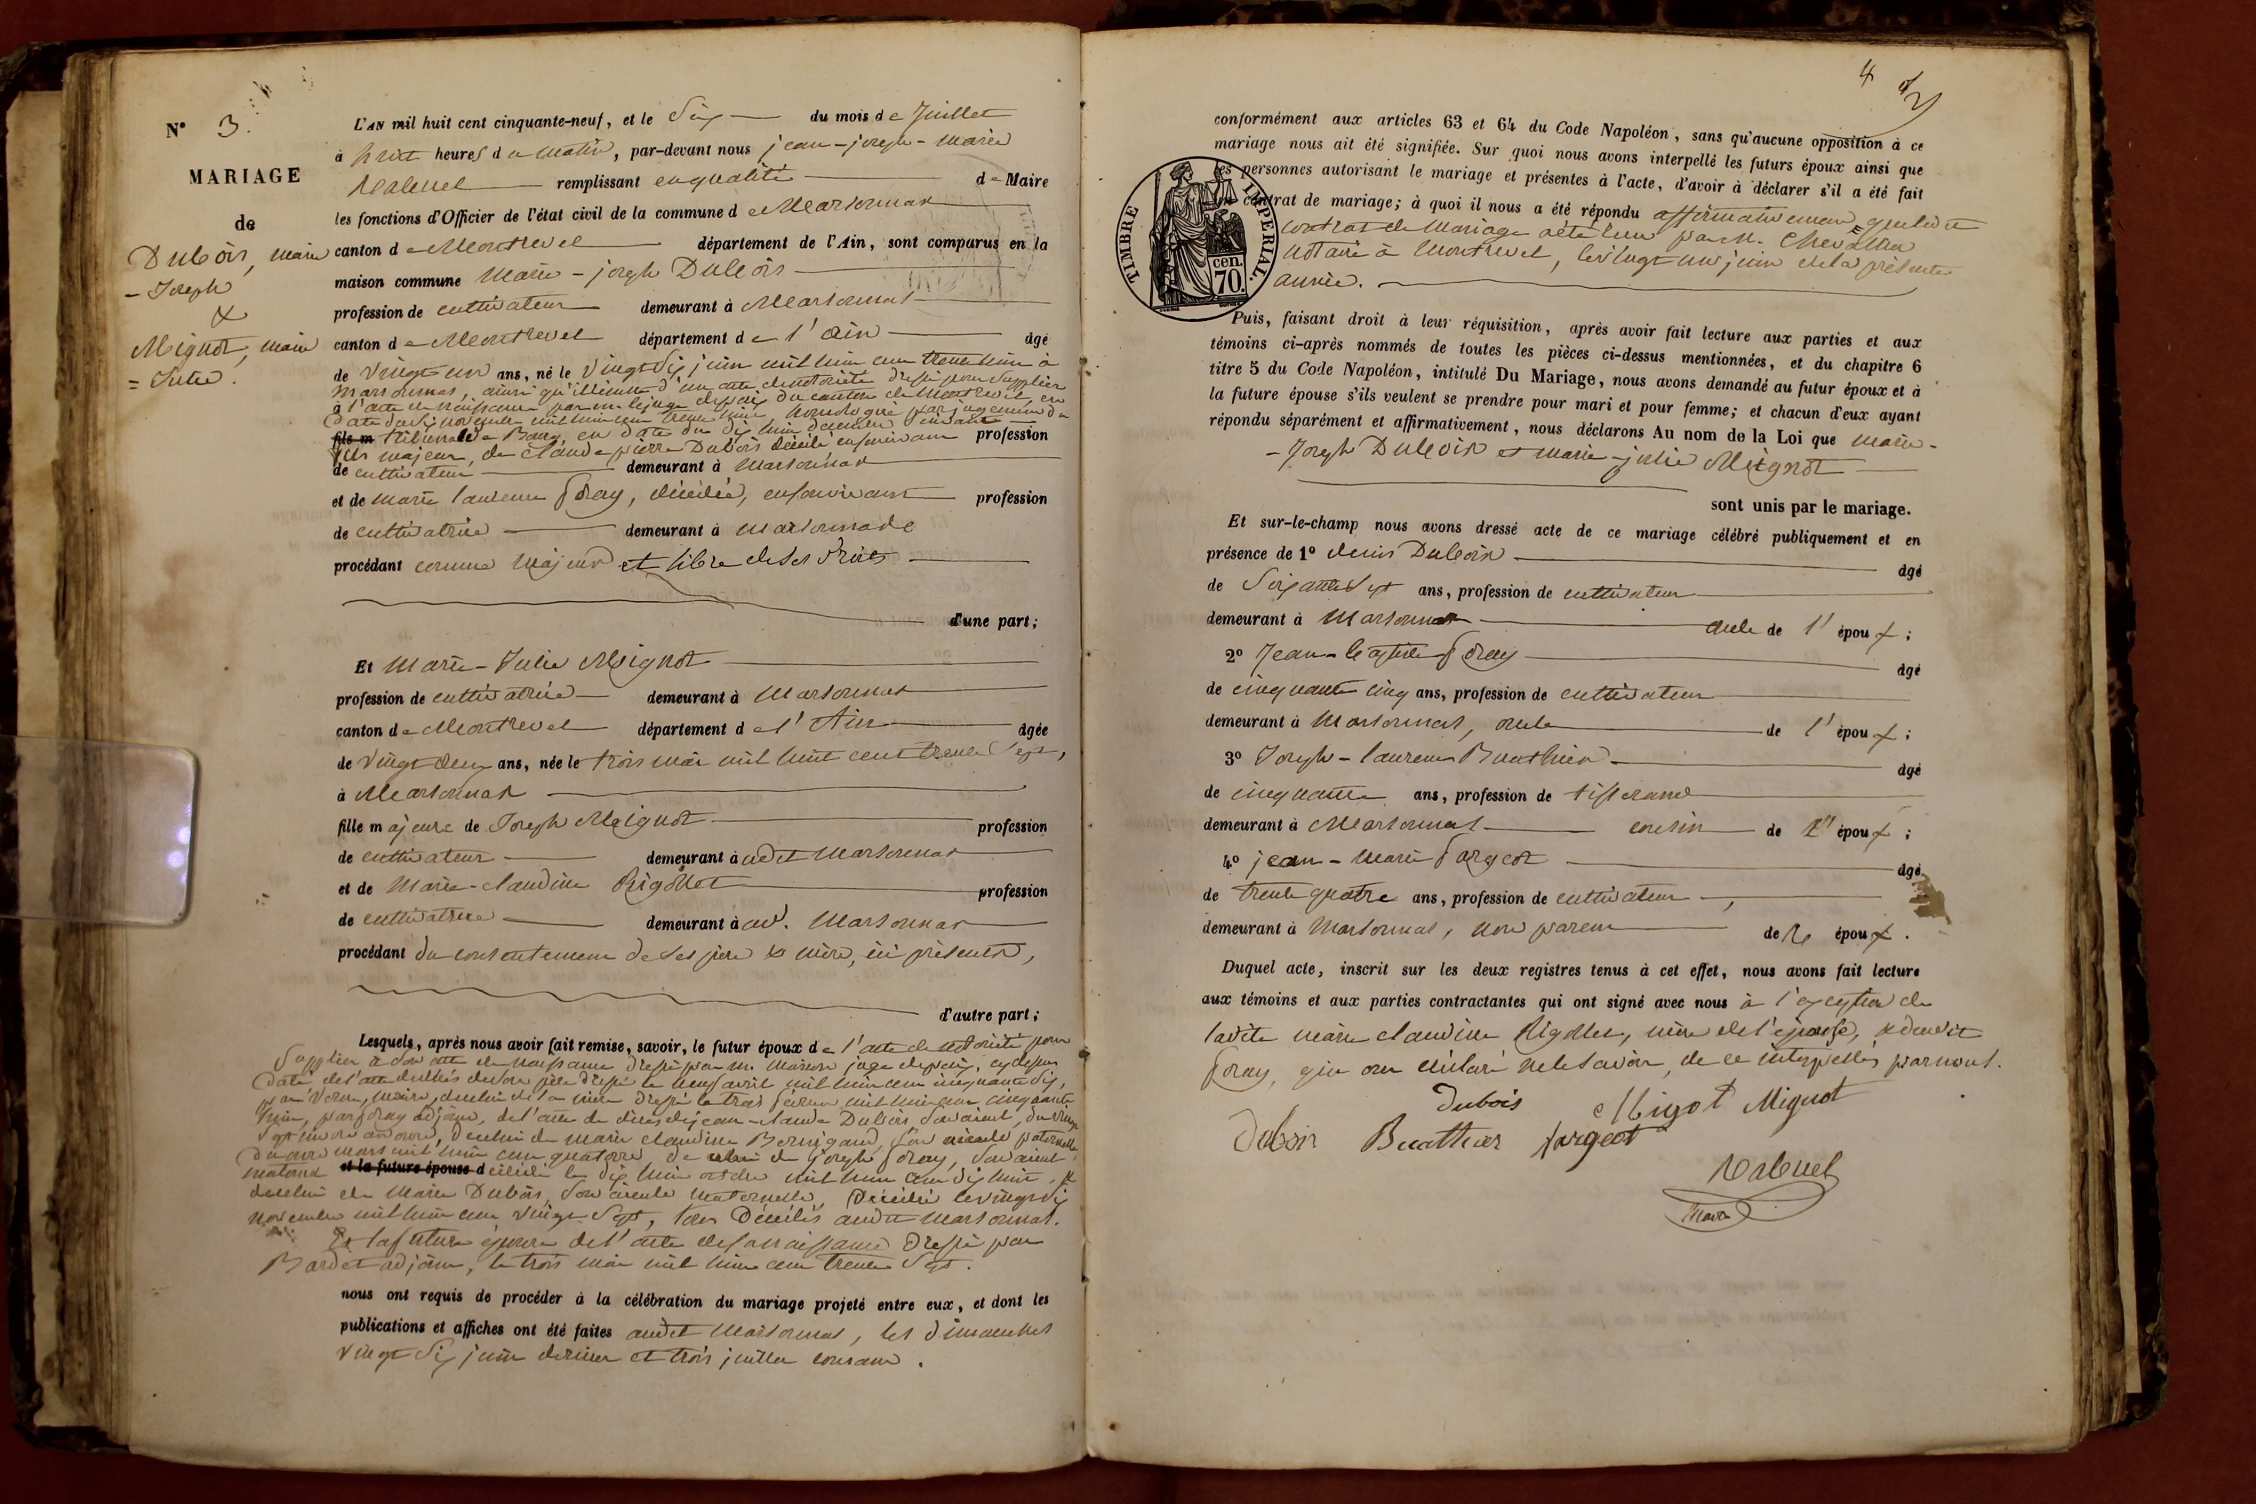 N° 3.
MARIAGE
de
Dubois, marie
- Joseph
&
Mignot, marie
= Julie.
L'AN mil huit cent cinquante-neuf, et le Six du mois de Juillet
à huit heures du matin, par-devant nous jean-joseph-marie
remplissant en qualité de Maire
les fonctions d'Officier de l'état civil de la commune de Marsonnas
canton de Montrevel département de l'Ain, sont comparus en la
maison commune Marie-joseph Dubois
profession de cultivateur demeurant à Marsonnas
canton de Montrevel département de l'Ain âgé
de vingt un ans, né le vingt Six juin mil huit cent trente huit à
Marsonnas, ainsi qu'il résulte d'un acte de notoriété dressé pour Suppléer
à l'acte de naissance par m. le juge de paix du canton de Montrevel, en
date du Six novembre mil huit cent trente huit, homologué par jugement du
fils m tribunal de Bourg, en date du dix huit décembre Suivant
fils majeur, de claude pierre Dubois décédé, en Son vivant profession
de cultivateur demeurant à Marsonnas
et de marie laurence foray, décédée, en Son vivant profession
de cultivatrice demeurant à Marsonnas
procédant comme Majeur et libre de Ses droits
d'une part;
Et Marie-Julie Mignot
profession de cultivatrice demeurant à Marsonnas
canton de Montrevel département de l'Ain âgée
de vingt deux ans, née le trois mai mil huit cent trente Sept,
à Marsonnas
fille majeure de Joseph Mignot profession
de cultivateur demeurant à udit Marsonnas
et de Marie-claudine Rigollet profession
de cultivatrice demeurant à ud. Marsonnas
procédant du consentement de Ses père & mère, ici présents,
d'autre part;
Lesquels, après nous avoir fait remise, savoir, le futur époux de l'acte de notoriété pour
Suppléer à Son acte de naissance dressé par m. juge de paix,
date, de l'acte de décès de Son père dressé le neuf avril mil huit cent cinquante Six,
maire, de celui de Sa mère dressé le trois février mil huit cent cinquante
huit, par foray adjoint, de l'acte de décès de jean-claude Dubois Son aïeul, du vingt
Sept de celui de marie claudine Son aïeule paternelle
du mars mil huit cent quatorze, de celui de joseph foray, Son aïeul
maternel et la future épouse décédé le dix huit octobre mil huit cent dix huit, &
de celui de Marie Dubois, Son aïeule maternelle, décédée le vingt Six
novembre mil huit cent vingt Sept, tous décédés audit Marsonnas.
Et la future épouse de l'acte de Sa naissance dressé par
Bardet adjoint, le trois mai mil huit cent trente Sept.
nous ont requis de procéder à la célébration du mariage projeté entre eux, et dont les
publications et affiches ont été faites audit Marsonnas, les dimanches
vingt Six juin dernier et trois juillet courant.
4
conformément aux articles 63 et 64 du Code Napoléon, sans qu'aucune opposition à ce
mariage nous ait été signifiée. Sur quoi nous avons interpellé les futurs époux ainsi que
les personnes autorisant le mariage et présentes à l'acte, d'avoir à déclarer s'il a été fait
un contrat de mariage; à quoi il nous a été répondu affirmativement, que ledit
contrat de mariage a été reçu par m. Chevallier
notaire à Montrevel, le vingt un juin de la présente
année.
TIMBRE IMPERIAL.
70 cen.
Puis, faisant droit à leur réquisition, après avoir fait lecture aux parties et aux
témoins ci-après nommés de toutes les pièces ci-dessus mentionnées, et du chapitre 6
titre 5 du Code Napoléon, intitulé Du Mariage, nous avons demandé au futur époux et à
la future épouse s'ils veulent se prendre pour mari et pour femme; et chacun d'eux ayant
répondu séparément et affirmativement, nous déclarons Au nom de la Loi que marie-
- Joseph Dubois et marie-julie Mignot
sont unis par le mariage.
Et sur-le-champ nous avons dressé acte de ce mariage célébré publiquement et en
présence de 1° denis Dubois âgé
de Soixante Sept ans, profession de cultivateur
demeurant à Marsonnas oncle de l'époux;
2° Jean-baptiste foray âgé
de cinquante cinq ans, profession de cultivateur
demeurant à Marsonnas, oncle de l'époux;
3° Joseph-laurent Buathier âgé
de cinquante ans, profession de tisserand
demeurant à Marsonnas cousin de l'époux;
4° jean-marie fargeot âgé
de trente quatre ans, profession de cultivateur,
demeurant à Marsonnas, non parent de l'époux.
Duquel acte, inscrit sur les deux registres tenus à cet effet, nous avons fait lecture
aux témoins et aux parties contractantes qui ont signé avec nous à l'exception de
ladite marie claudine Rigollet, mère de l'épouse, & dudit
foray, qui ont déclaré ne le Savoir, de ce interpellés par nous.
Dubois Migot Mignot
Duboir Buathier fargeot
maire